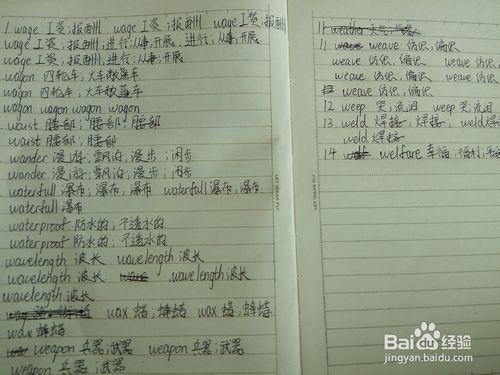 1. wage 工资;报酬 wage 工资;报酬 wage 工资;报酬
wage 工资;报酬,进行;从事;开展,进行;从事,开展.
wage 工资;报酬,进行;从事,开展.
wagon 四轮车;火车敞篷车
wagon 四轮车;火车敞篷车
wagon wagon wagon wagon
waist 腰部;腰部;腰部
waist 腰部;腰部
wander 漫游;飘泊;漫步;闲步
wander 漫游;飘泊;漫步;闲步
waterfull 瀑布;瀑布,瀑布 waterfull 瀑布,瀑布
waterfull 瀑布
waterproof 防水的;不透水的
waterproof 防水的;不透水的
wavelength 波长 wavelength 波长
wavelength 波长 wavelength 波长
wavelength 波长
wax 蜡;蜂蜡 wax 蜡;蜂蜡
wax 蜂蜡
weapon 兵器;武器 weapon 兵器;武器
weapon 兵器;武器
11 weather 天气,
11 weave 纺织,编织
weave 纺织,编织 weave 纺织
weave 纺织,编织 weave 纺织
weave 纺织,编织
12 weep 哭;流泪 weep 哭;流泪
13 weld 焊接, 焊接; weld 焊接
weld 焊接
14 welfare 幸福;福利;
Baidu 经验
jingyan.baidu.com